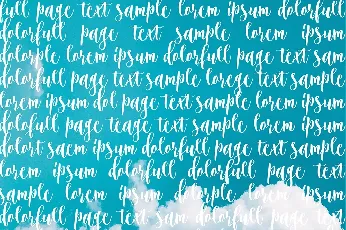 full page text sample lorem ipsum dolorfull
dolorfull page text sample lorem ipsum
dolorple lorem ipsum dolorfull page text sam
dolorfull page text sample lorege text sample
lorem ipsum dol page text sample lorem ipsum
dolofull page teage text sample lorem ipsum
dolort saem ipsum dolorfull page text sample
lorem ipsum dolorfull page text
sample lorem ipsum dolorple lorem ipsum
dolorfull page text sam dolorfull page text